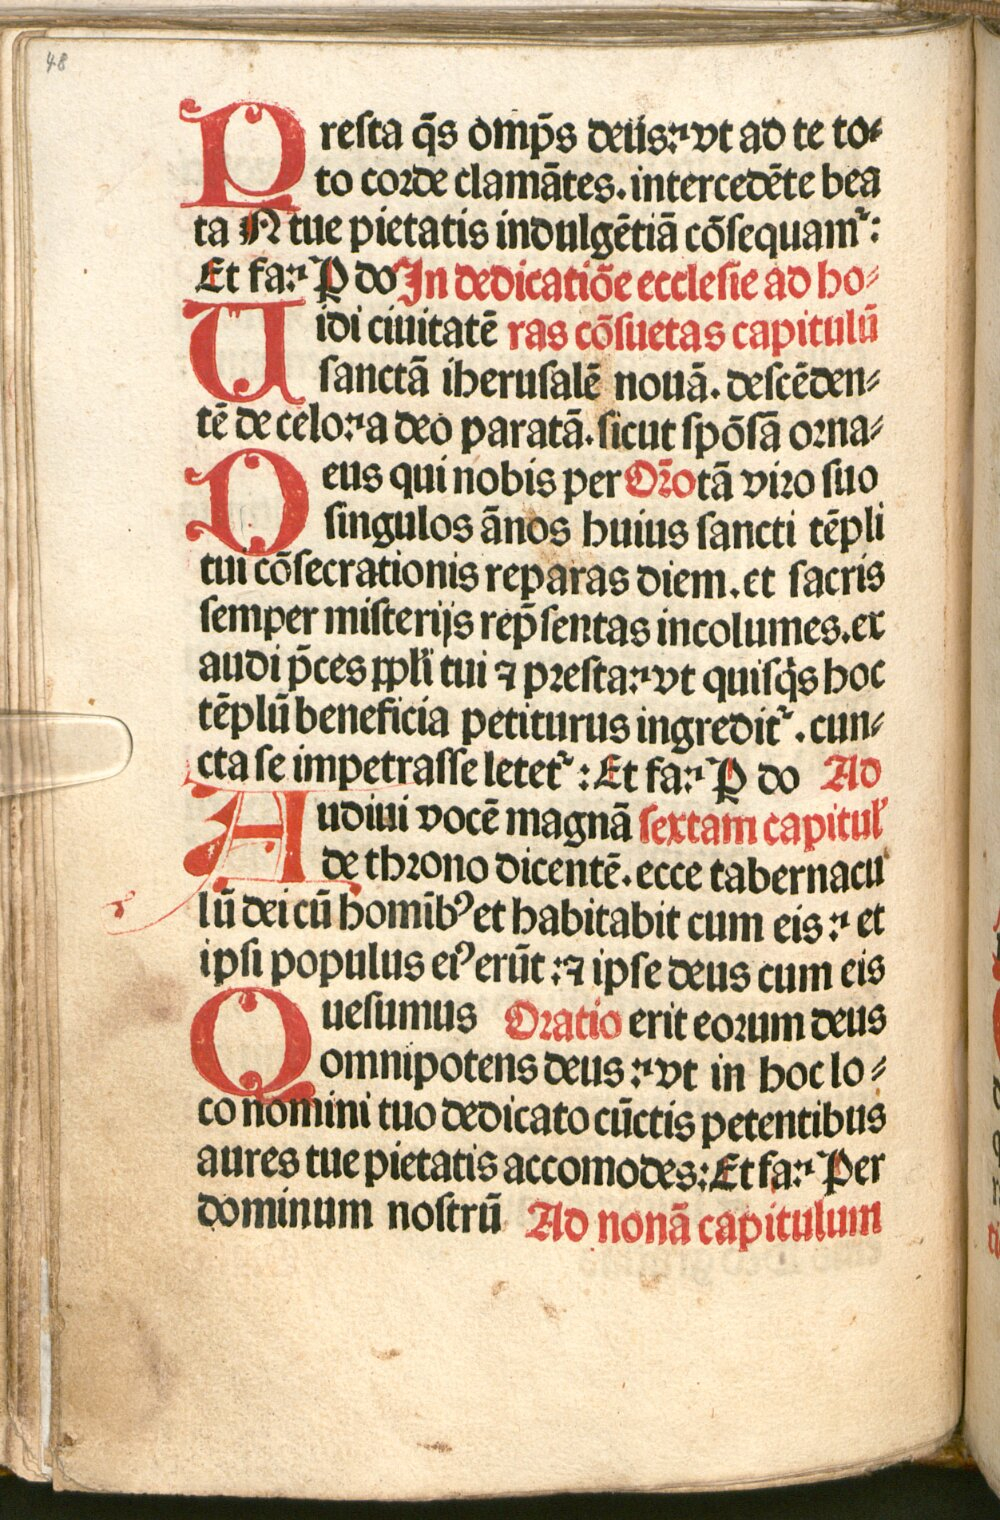 48
Presta q̄s om̄ps deus: ⁊ vt ad te to⸗
to corde clamātes. intercedēte bea
ta N tue pietatis indulgētiā cōsequamᷣ:
Et fa: ⁊ P do In dedicatiōe ecclesie ad ho⸗
Uidi ciuitatē ras cōsuetas capitulū
sanctā iherusalē nouā. descēden⸗
tē de celo: ⁊ a deo paratā. sicut spōsā orna⸗
Deus qui nobis per Or̄o tā viro suo
singulos ānos huius sancti tēpli
tui cōsecrationis reparas diem. et sacris
semper misterijs rep̄sentas incolumes. ex
audi p̄ces ppl̄i tui ⁊ presta: ⁊ vt quisq̄s hoc
tēplū beneficia petiturus ingreditᷣ. cun⸗
cta se impetrasse letetᷣ: Et fa: ⁊ P do Ad
Audiui vocē magnā sextam capitul'
de throno dicentē. ecce tabernacu
lū dei cū homībꝰ et habitabit cum eis: ⁊ et
ipsi populus eiꝰ erūt: ⁊ ipse deus cum eis
Quesumus Oratio erit eorum deus
omnipotens deus: ⁊ vt in hoc lo⸗
co nomini tuo dedicato cūctis petentibus
aures tue pietatis accomodes: Et fa: ⁊ Per
dominum nostrū Ad nonā capitulum